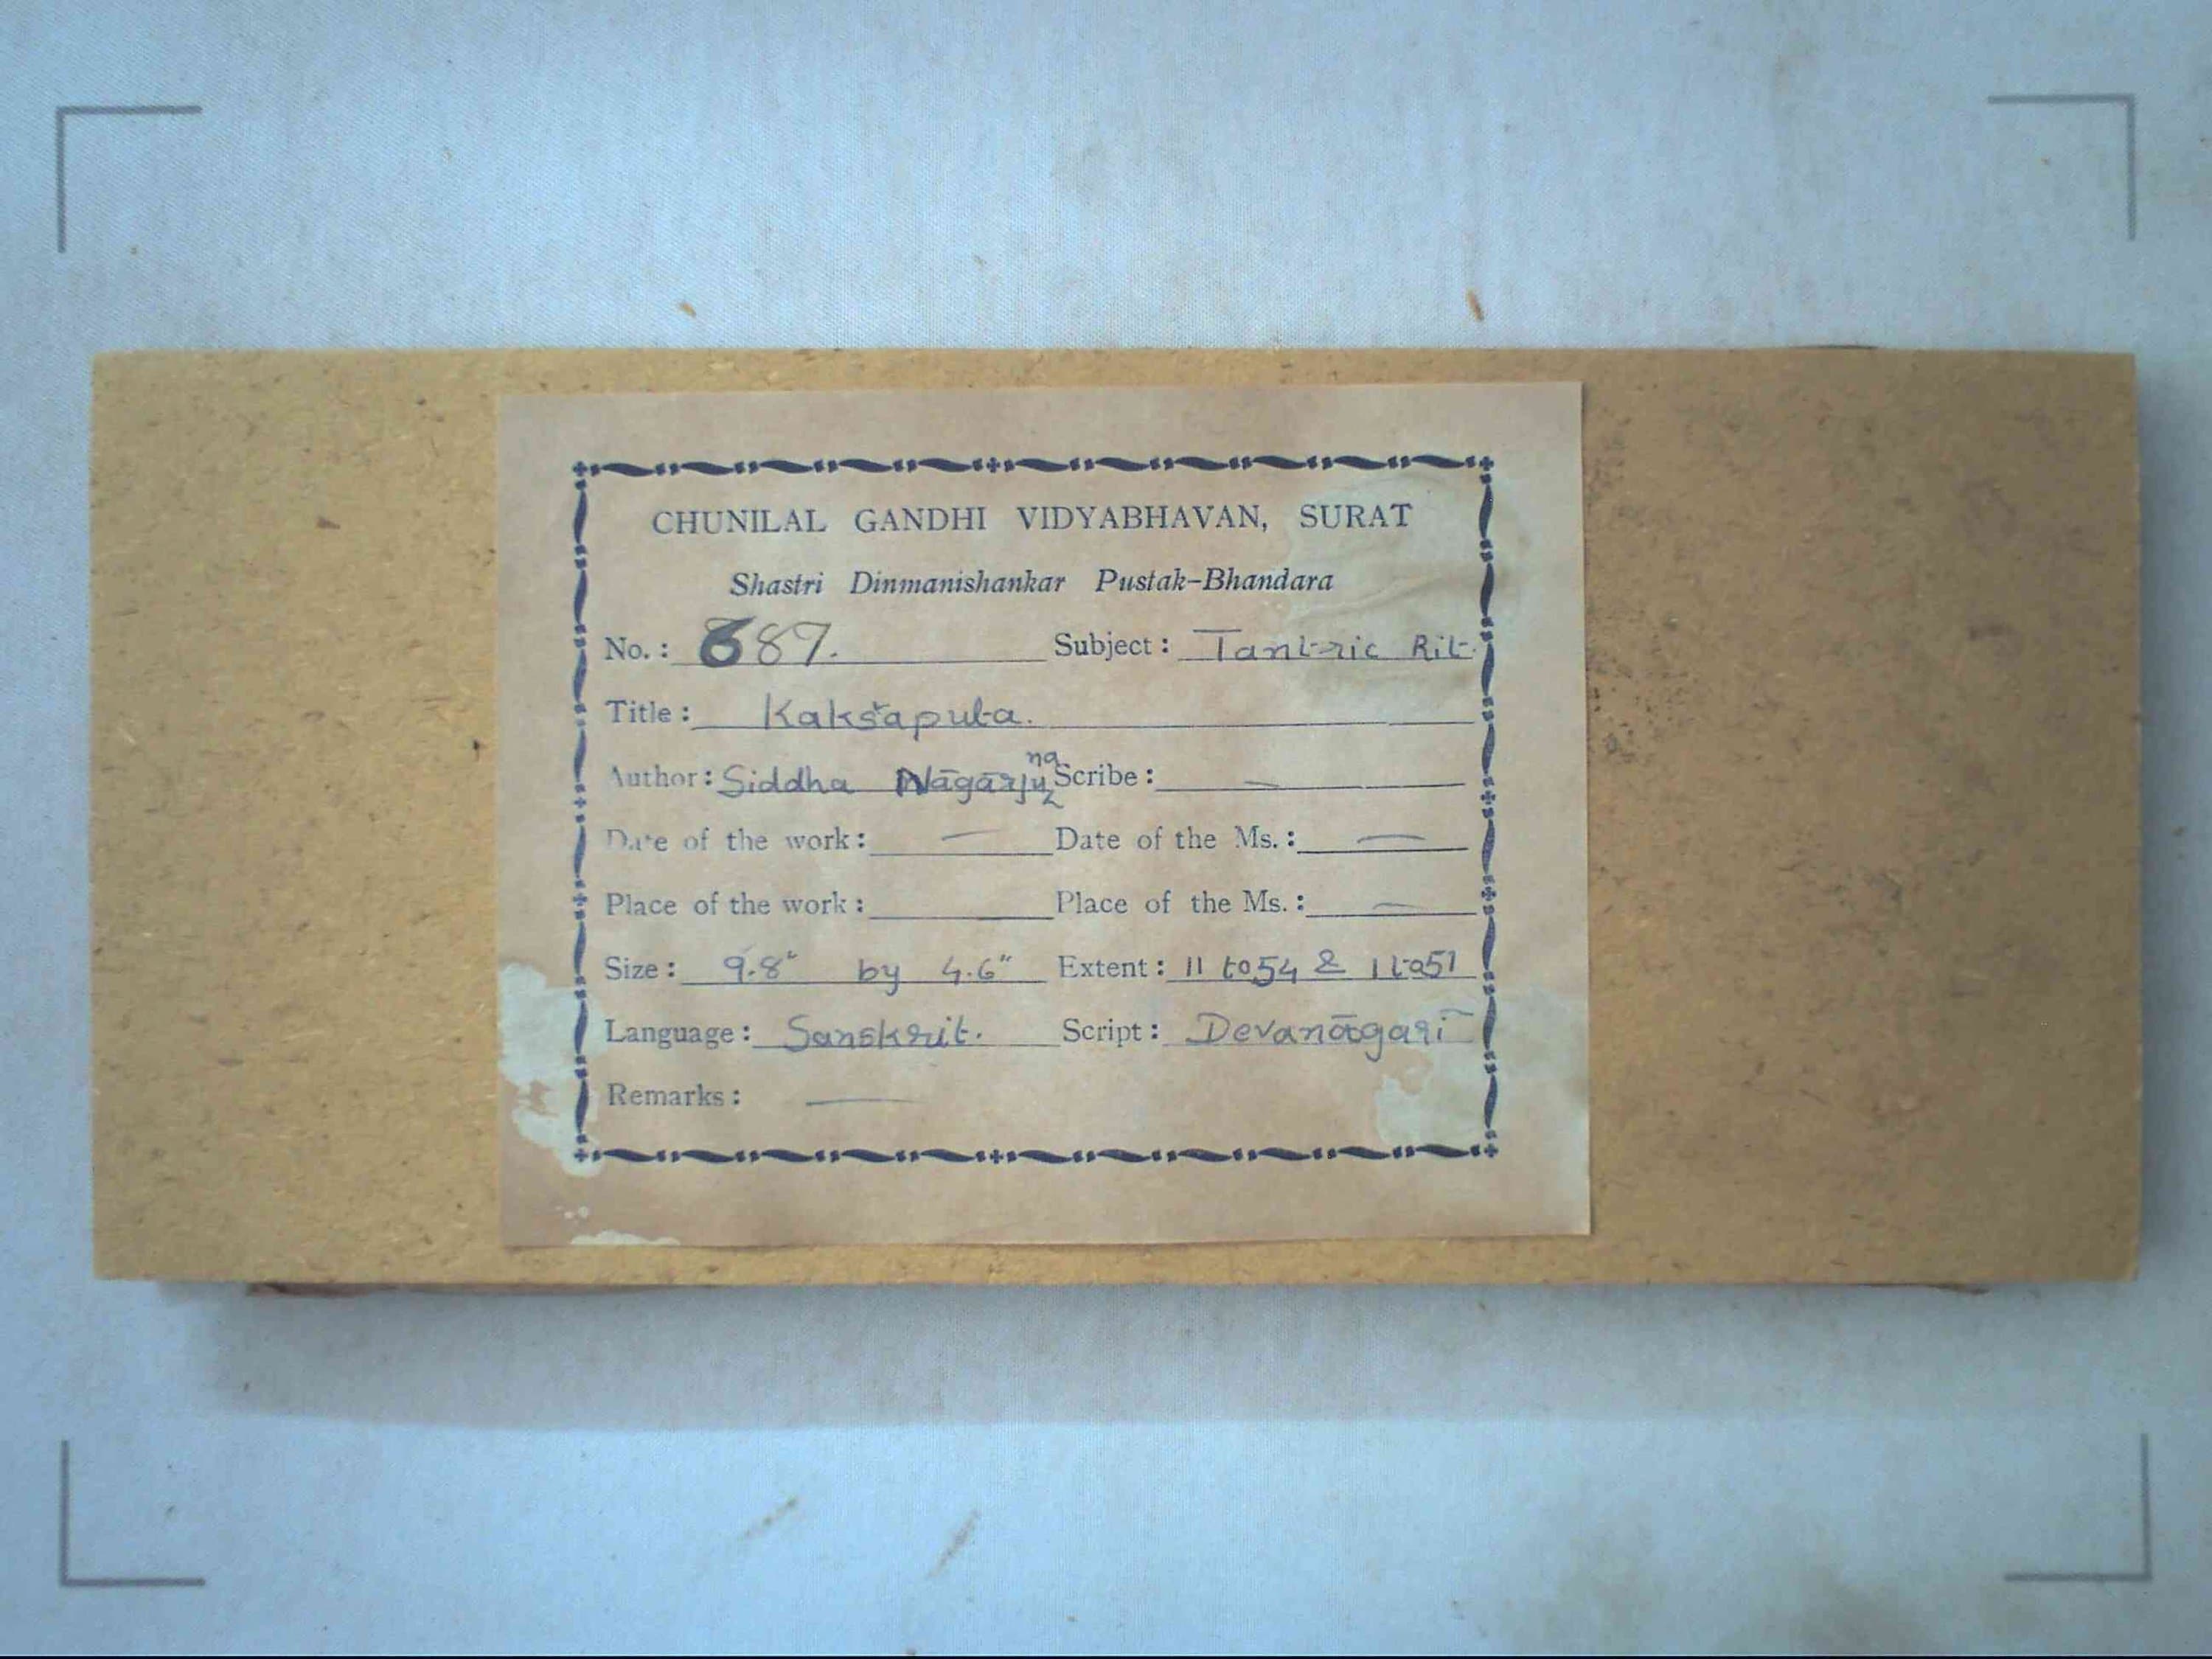 CHUNILAL GANDHI VIDYABHAVAN, SURAT
Shastri Dinmanishankar Pustak-Bhandara
No. : 687. Subject : Tantric Rit.
Title : Kakṣaputa.
Author : Siddha Nāgārjuna Scribe : —
Date of the work : — Date of the Ms. : —
Place of the work : Place of the Ms. : —
Size : 9.8" by 4.6" Extent : 11 to 54 & 1 to 51
Language : Sanskrit. Script : Devanāgarī
Remarks : —